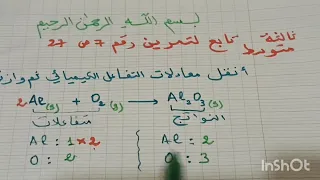 بسم الله الرحمٰن الرحيم
ثالثة متوسط
تابع لتمرين رقم 7 ص 27
أنقل معادلات التفاعل الكيميائي ثم وازن
2Al(s) + O₂(g) → Al₂O₃(s)
متفاعلات
النواتج
Al : 1×2
Al : 2
O : 2
O : 3
InShOt